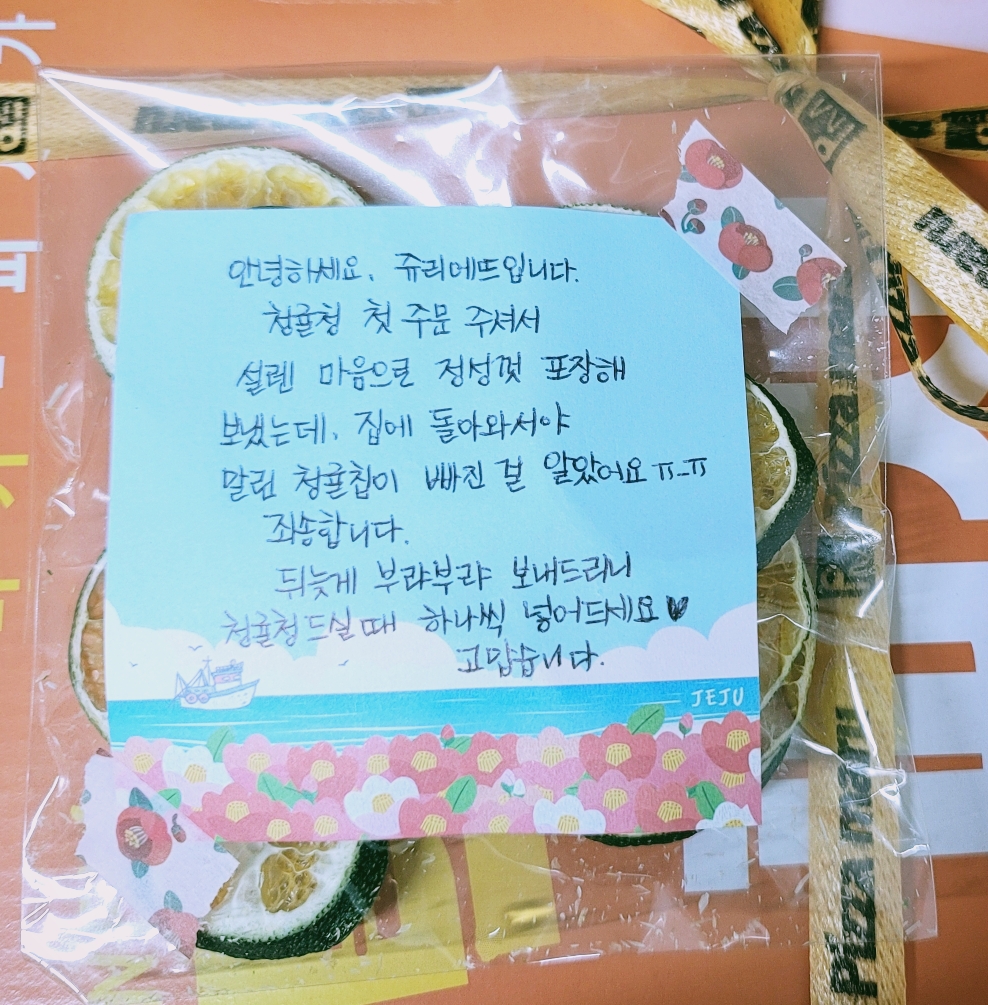 안녕하세요. 쥬리에뜨입니다.
청귤청 첫 주문 주셔서
설렌 마음으로 정성껏 포장해
보냈는데, 집에 돌아와서야
말린 청귤칩이 빠진 걸 알았어요 ㅠ_ㅠ
죄송합니다.
뒤늦게 부랴부랴 보내드리니
청귤청 드실 때 하나씩 넣어드세요♥
고맙습니다.
JEJU
Pizza mani